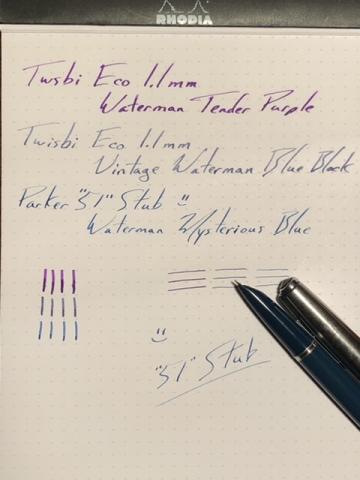 RHODIA
Twsbi Eco 1.1mm
Waterman Tender Purple
Twisbi Eco 1.1mm
Vintage Waterman Blue Black
Parker "51" Stub
Waterman Mysterious Blue
"51" Stub